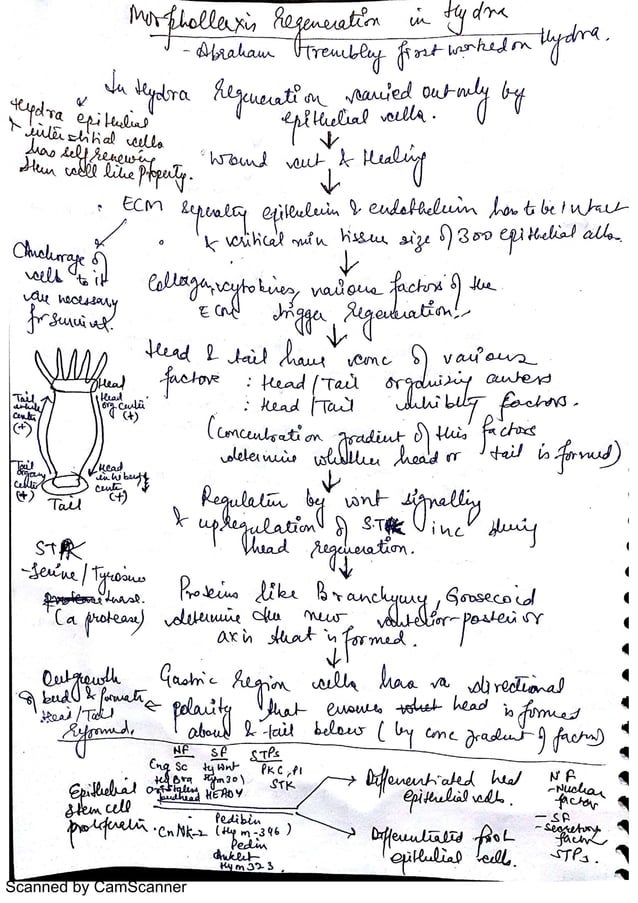 Morphollaxis Regeneration in Hydra
- Abraham Trembley first worked on Hydra.
In Hydra Regeneration carried out only by
epithelial cells.
Hydra epithelial
& interstitial cells
has self renewing
stem cell like property.
Wound cut & Healing
ECM separating epithelium & endothelium has to be intact
& critical min tissue size of 300 epithelial cells.
Anchorage of
cells to it
are necessary
for survival.
Collagen, cytokines, various factors of the
ECM trigger Regeneration.
Head & tail have conc of various
factors : Head/Tail organising centers
: Head/Tail inhibitory factors.
(Concentration gradient of this factors
determine whether head or tail is formed)
Head
Head
org center
(+)
Tail
center
(+)
Tail
organ
center
(+)
Head
center
(+)
Tail
Regulation by wnt signalling
& upregulation of STK inc during
head regeneration.
STK
- Serine/Tyrosine
(a protease)
Proteins like Branchyury, Goosecoid
determine the new anterior-posterior
axis that is formed.
Outgrowth
of bud & formation
Head/Tail
Reformed.
Gastric Region cells has a directional
polarity that ensures head is formed
above & tail below (by conc gradient of factors)
NF SF STPs
Hy Wnt
Hym 301
HEADY
PKC, PI
STK
Epithelial
stem cell
proliferatin
CnNK-2
Pedibin
(Hym-346)
Pedin
Hym 323
Differentiated head
epithelial cells.
Differentiated foot
epithelial cells.
NF
- Nuclear
factor
- SF
- Secretory
factor
STPs.
Scanned by CamScanner